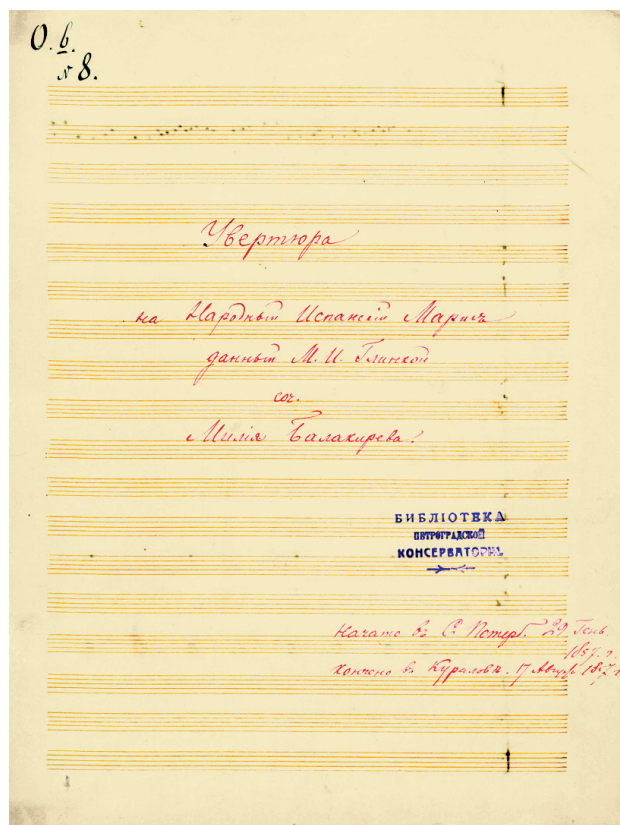 О. б.
№ 8.
Увертюра
на Народный Испанскій Маршъ
данный М. И. Глинкой
соч.
Милія Балакирева.
БИБЛІОТЕКА
ПЕТРОГРАДСКОЙ
КОНСЕРВАТОРІИ
Начато въ С. Петерб. 29 Генв.
1857. г.
кончено в 17 Август 1857 г